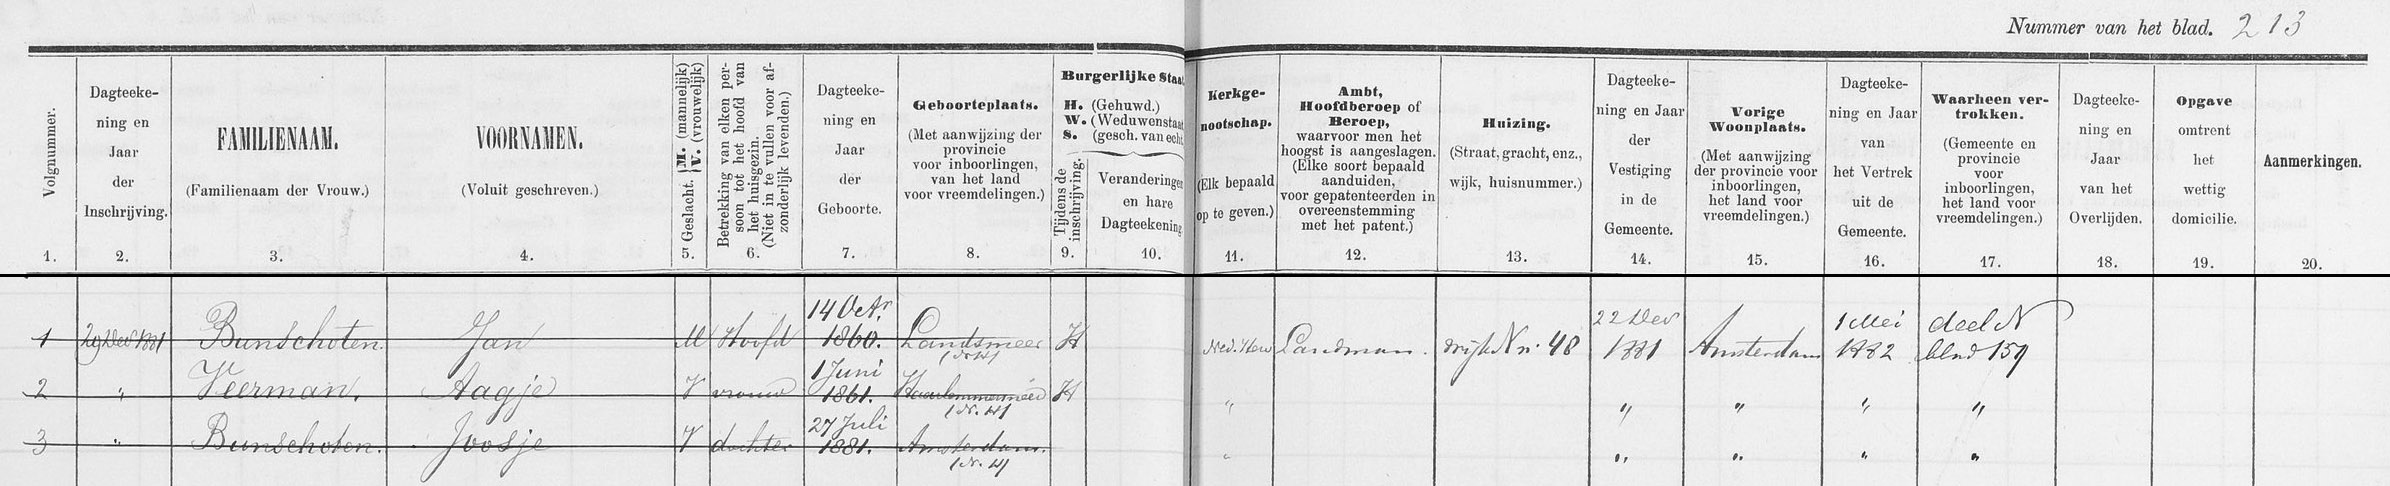 Nummer van het blad. 213
Volgnummer.
1.
Dagteeke-
ning en
Jaar
der
Inschrijving.
2.
FAMILIENAAM.
(Familienaam der Vrouw.)
3.
VOORNAMEN.
(Voluit geschreven.)
4.
Geslacht. M. (mannelijk) V. (vrouwelijk)
5.
Betrekking van elken per-
soon tot het hoofd van
het huisgezin.
(Niet in te vullen voor af-
zonderlijk levenden.)
6.
Dagteeke-
ning en
Jaar
der
Geboorte.
7.
Geboorteplaats.
(Met aanwijzing der
provincie
voor inboorlingen,
van het land
voor vreemdelingen.)
8.
Burgerlijke Staat
H. (Gehuwd.)
W. (Weduwenstaat
S. (gesch. van echt
Tijdens de
inschrijving.
9.
Veranderingen
en hare
Dagteekening
10.
Kerkge-
nootschap.
(Elk bepaald
op te geven.)
11.
Ambt,
Hoofdberoep of
Beroep,
waarvoor men het
hoogst is aangeslagen.
(Elke soort bepaald
aanduiden,
voor gepatenteerden in
overeenstemming
met het patent.)
12.
Huizing.
(Straat, gracht, enz.,
wijk, huisnummer.)
13.
Dagteeke-
ning en Jaar
der
Vestiging
in de
Gemeente.
14.
Vorige
Woonplaats.
(Met aanwijzing
der provincie voor
inboorlingen,
het land voor
vreemdelingen.)
15.
Dagteeke-
ning en Jaar
van
het Vertrek
uit de
Gemeente.
16.
Waarheen ver-
trokken.
(Gemeente en
provincie
voor
inboorlingen,
het land voor
vreemdelingen.)
17.
Dagteeke-
ning en
Jaar
van het
Overlijden.
18.
Opgave
omtrent
het
wettig
domicilie.
19.
Aanmerkingen.
20.
14 Octr. 22 Dec 1 Mei deel N
1 29 Dec 1881 Bunschoten. Jan M Hoofd 1860. Landsmeer H Ned. Herv Landman. wijk N nr. 48 1881 Amsterdam 1882 blad 159
(N. H)
1 Juni
2 " Veerman. Aagje V vrouw 1861. Haarlemmermeer H " " " " "
(N. H)
27 Juli
3 " Bunschoten. Joosje V dochter 1881. Amsterdam. " " " " "
(N. H)